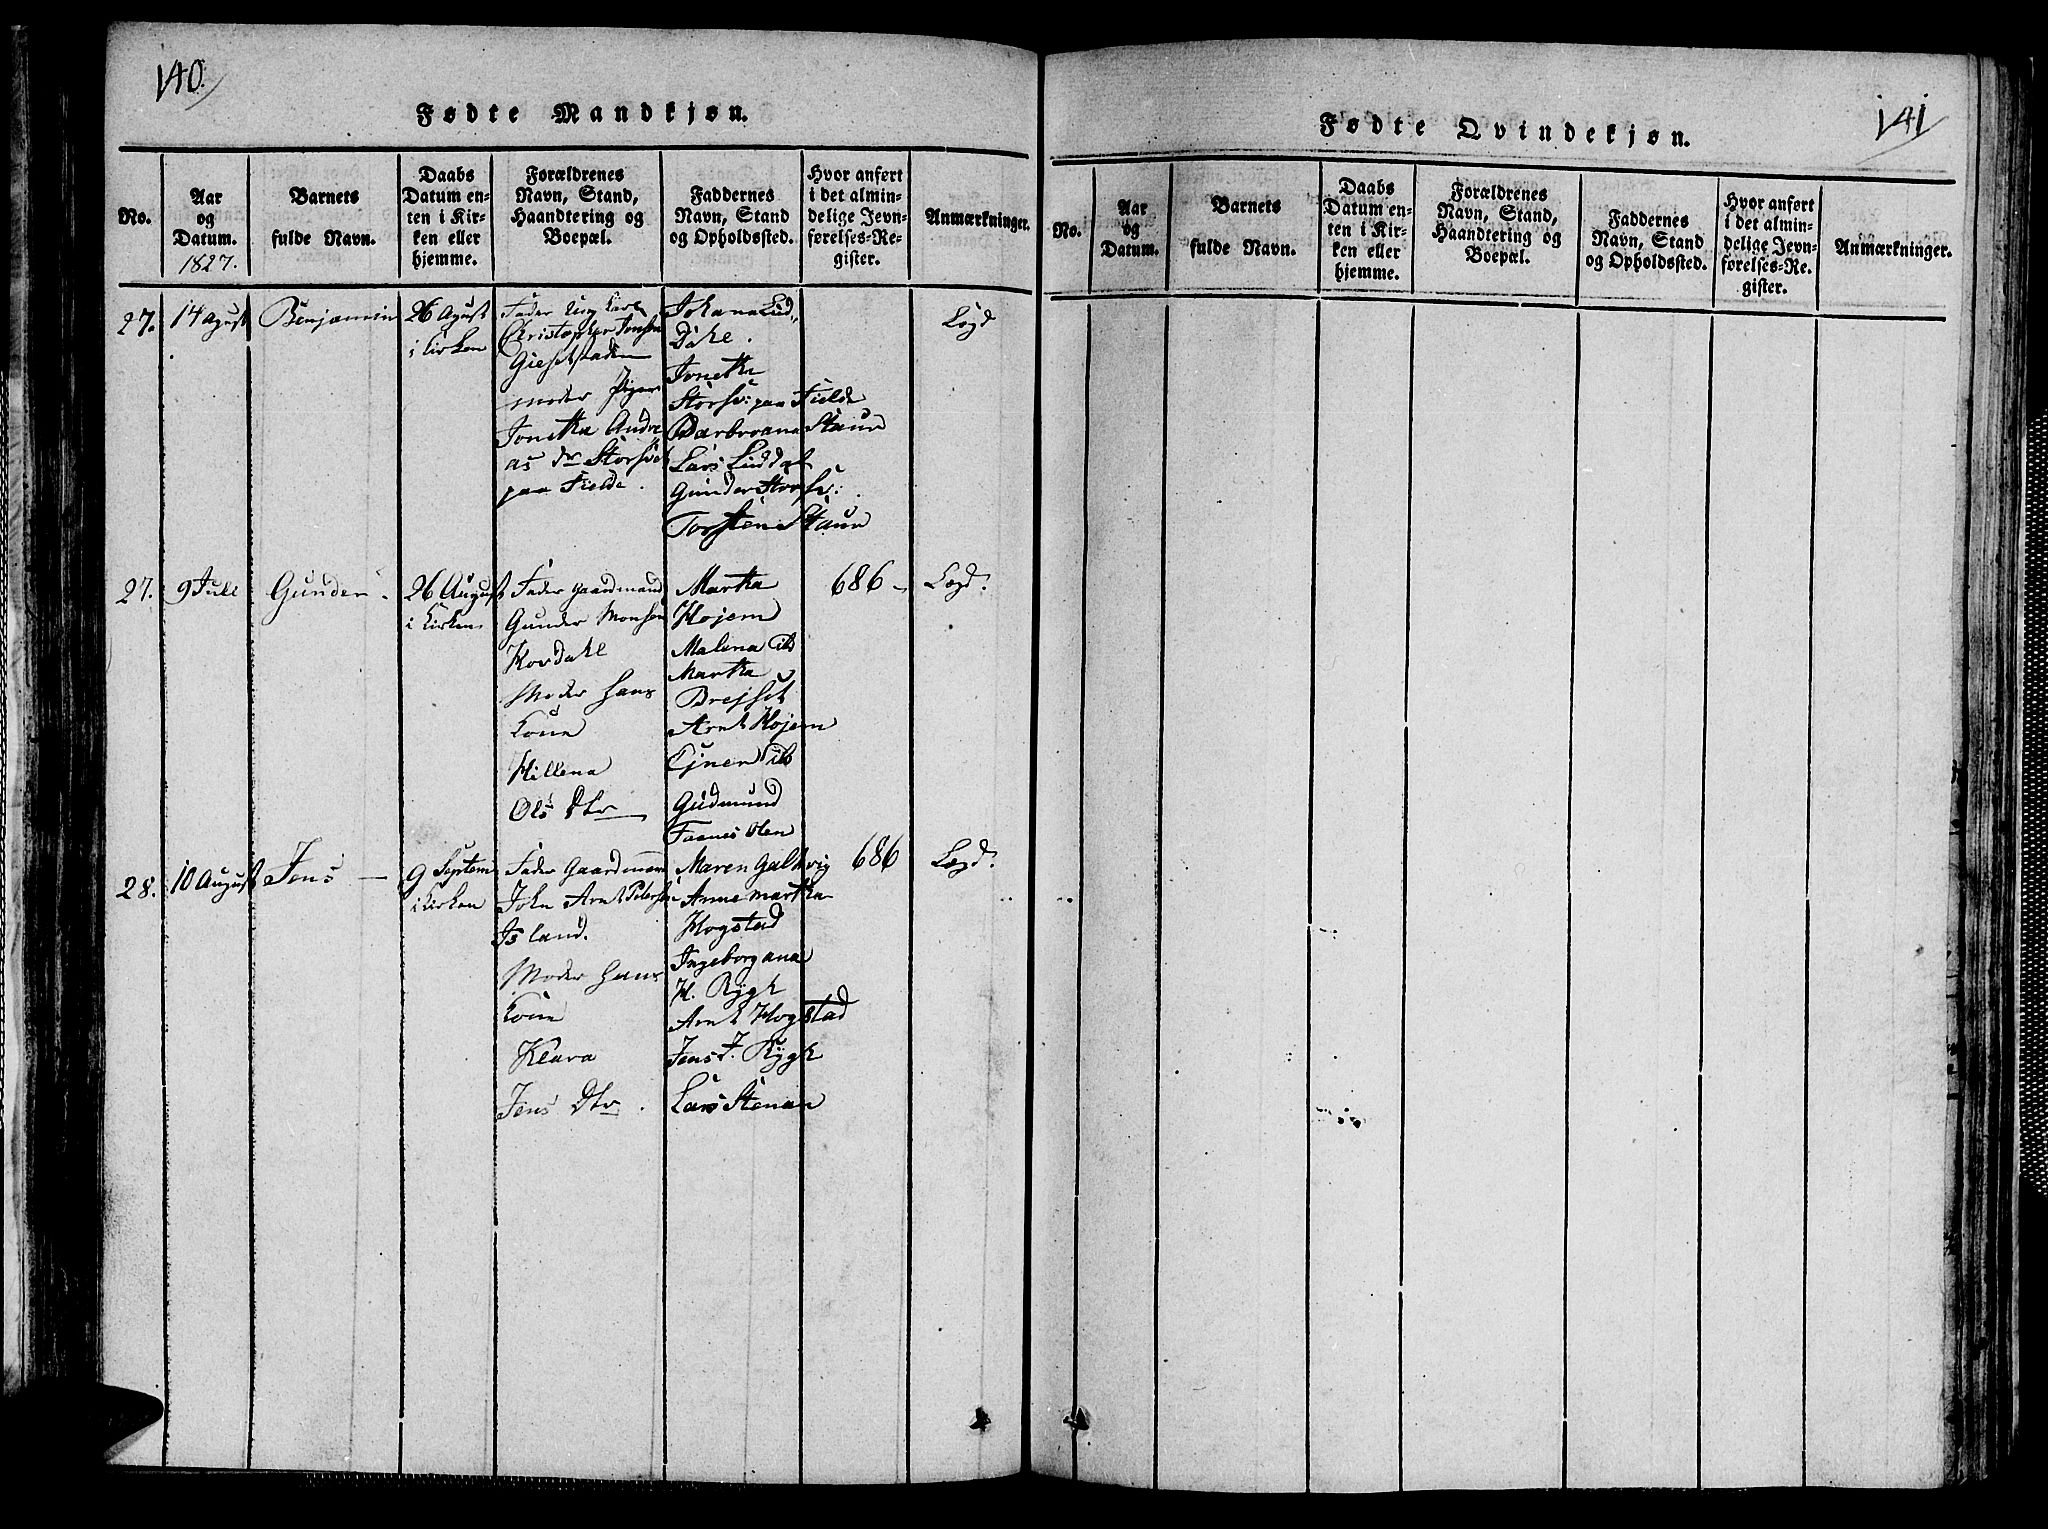 140.
Fødte Mandkjøn.
No.
Aar
og
Datum.
1827.
Barnets
fulde Navn.
Daabs
Datum en-
ten i Kir-
ken eller
hjemme.
Forældrenes
Navn, Stand,
Haandtering og
Boepæl.
Faddernes
Navn, Stand
og Opholdssted.
Hvor anført
i det almin-
delige Jevn-
førelses-Re-
gister.
Anmærkninger.
27.
14 Agust
Benjamin
26 Agust
i Kirken
Fader Ung Karl
Christopher Jensen
moder Pigen
Jonetha Andre
as Dr Storset
paa Fielde.
Johana Lud
Dahl.
Jonetha
Storse: paa Fielde
Barbroana Staur
Lars Luddal
Gunder Storse:
Torsten Staur
Lægd
27.
9 Jule
Gunder
26 August
i Kirken
Fader gaardmand
Gunder Monsen
Kordahl
Moder hans
Kone
Hillena
Ols Dtr
Martha
Hojem
Malena ib
Martha
Brejset
Arnt Hojem
Ejner ib
Gudmund
Faanes Olen
686
Lægd.
28.
10 August
Jens
9 Septem
i Kirken
Fader Gaardmann
John Arnt Petersen
Island.
Moder hans
Kone
Klara
Jens Dtr.
Maren Galthvig
Anne martha
Hogstad
Ingeborg ana
H. Rygh
Arnt Hogstad
Jens J. Rygh
Lars Stenan
686
Lægd.
141
Fødte Qvindekjøn.
No.
Aar
og
Datum.
Barnets
fulde Navn.
Daabs
Datum en-
ten i Kir-
ken eller
hjemme.
Forældrenes
Navn, Stand,
Haandtering og
Boepæl.
Faddernes
Navn, Stand
og Opholdssted.
Hvor anført
i det almin-
delige Jevn-
førelses-Re-
gister.
Anmærkninger.